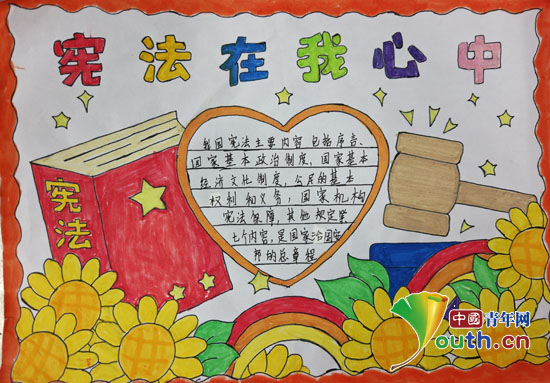 宪法在我心中
宪法
我国宪法主要内容包括序言、
国家基本政治制度,国家基本
经济文化制度,公民的基本
权利和义务,国家机构
宪法保障,其他规定等
七个内容,是国家治国安
邦的总章程
中国青年网
youth.cn